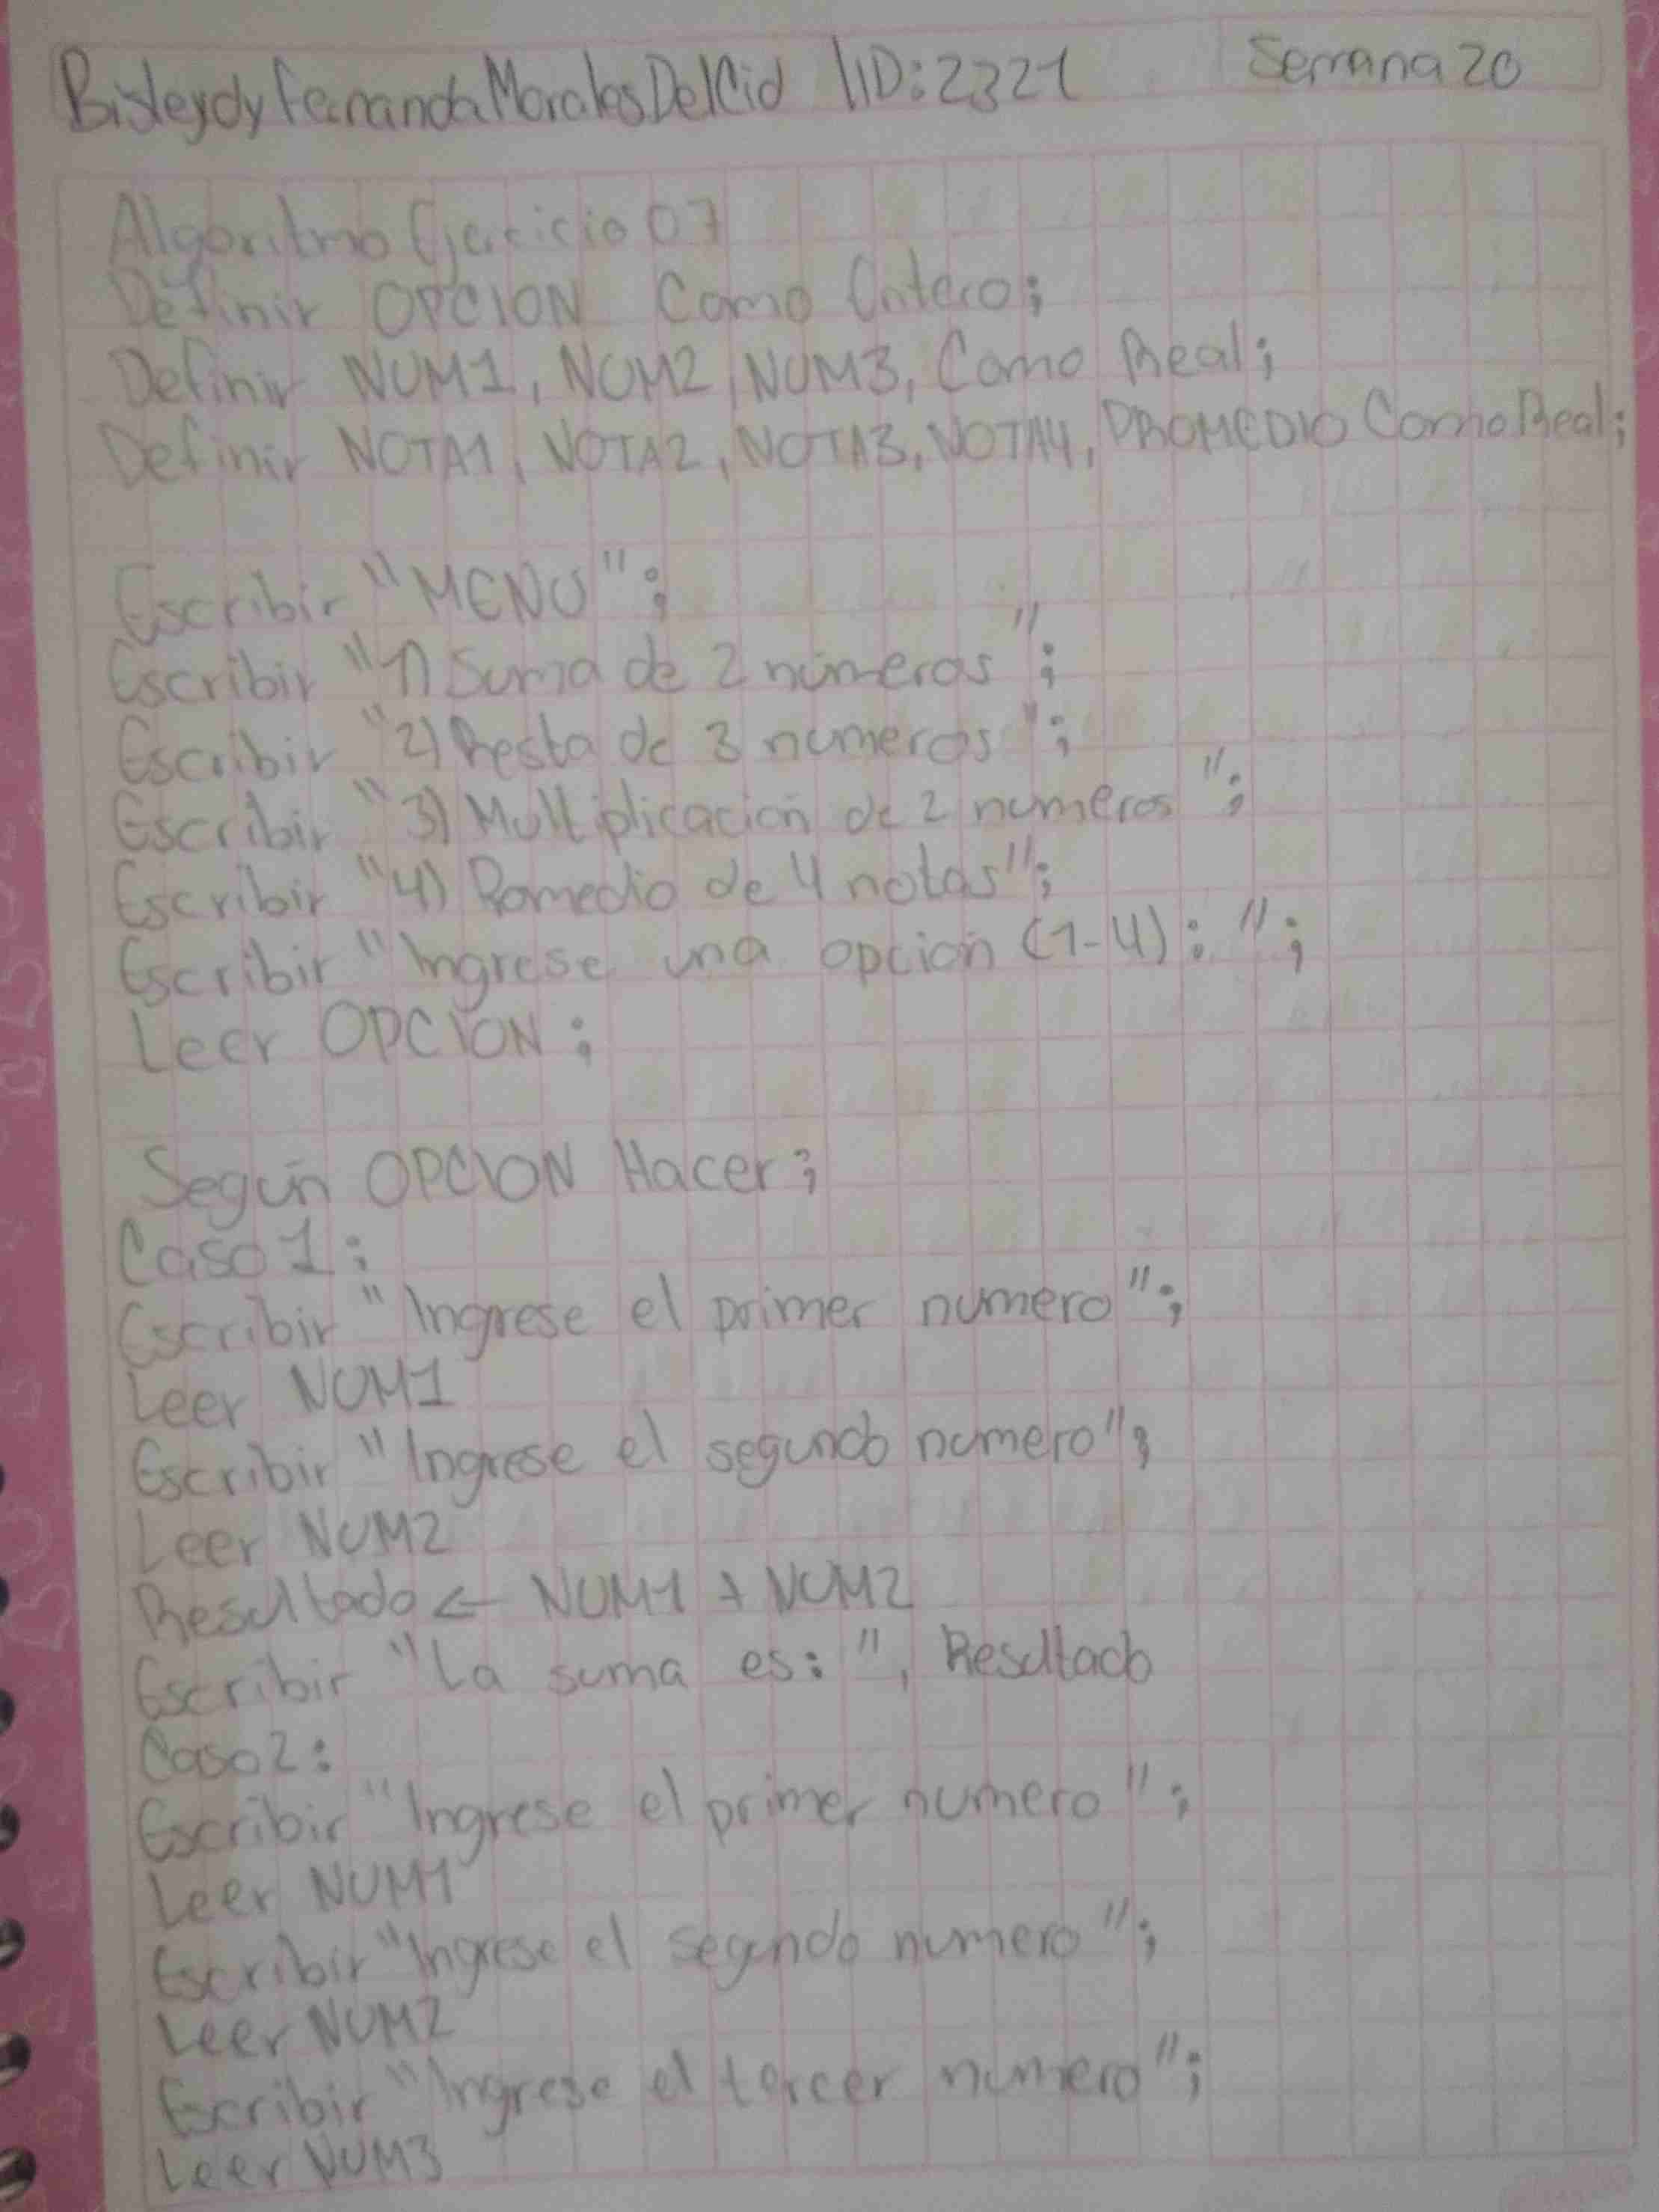 Bisleydy Fernanda Morales Del Cid ID: 2321 Semana 20
Algoritmo Ejercicio 07
Definir OPCION Como Entero;
Definir NUM1, NUM2, NUM3, Como Real;
Definir NOTA1, NOTA2, NOTA3, NOTA4, PROMEDIO Como Real;
Escribir "MENU";
Escribir "1) Suma de 2 números";
Escribir "2) Resta de 3 numeros";
Escribir "3) Multiplicación de 2 numeros";
Escribir "4) Romedio de 4 notas";
Escribir "Ingrese una opción (1-4): ";
Leer OPCION;
Según OPCION Hacer;
Caso 1:
Escribir "Ingrese el primer numero";
Leer NUM1
Escribir "Ingrese el segundo numero";
Leer NUM2
Resultado ← NUM1 + NUM2
Escribir "La suma es: ", Resultado
Caso 2:
Escribir "Ingrese el primer numero";
Leer NUM1
Escribir "Ingrese el segundo numero";
Leer NUM2
Escribir "Ingrese el tercer numero";
Leer NUM3